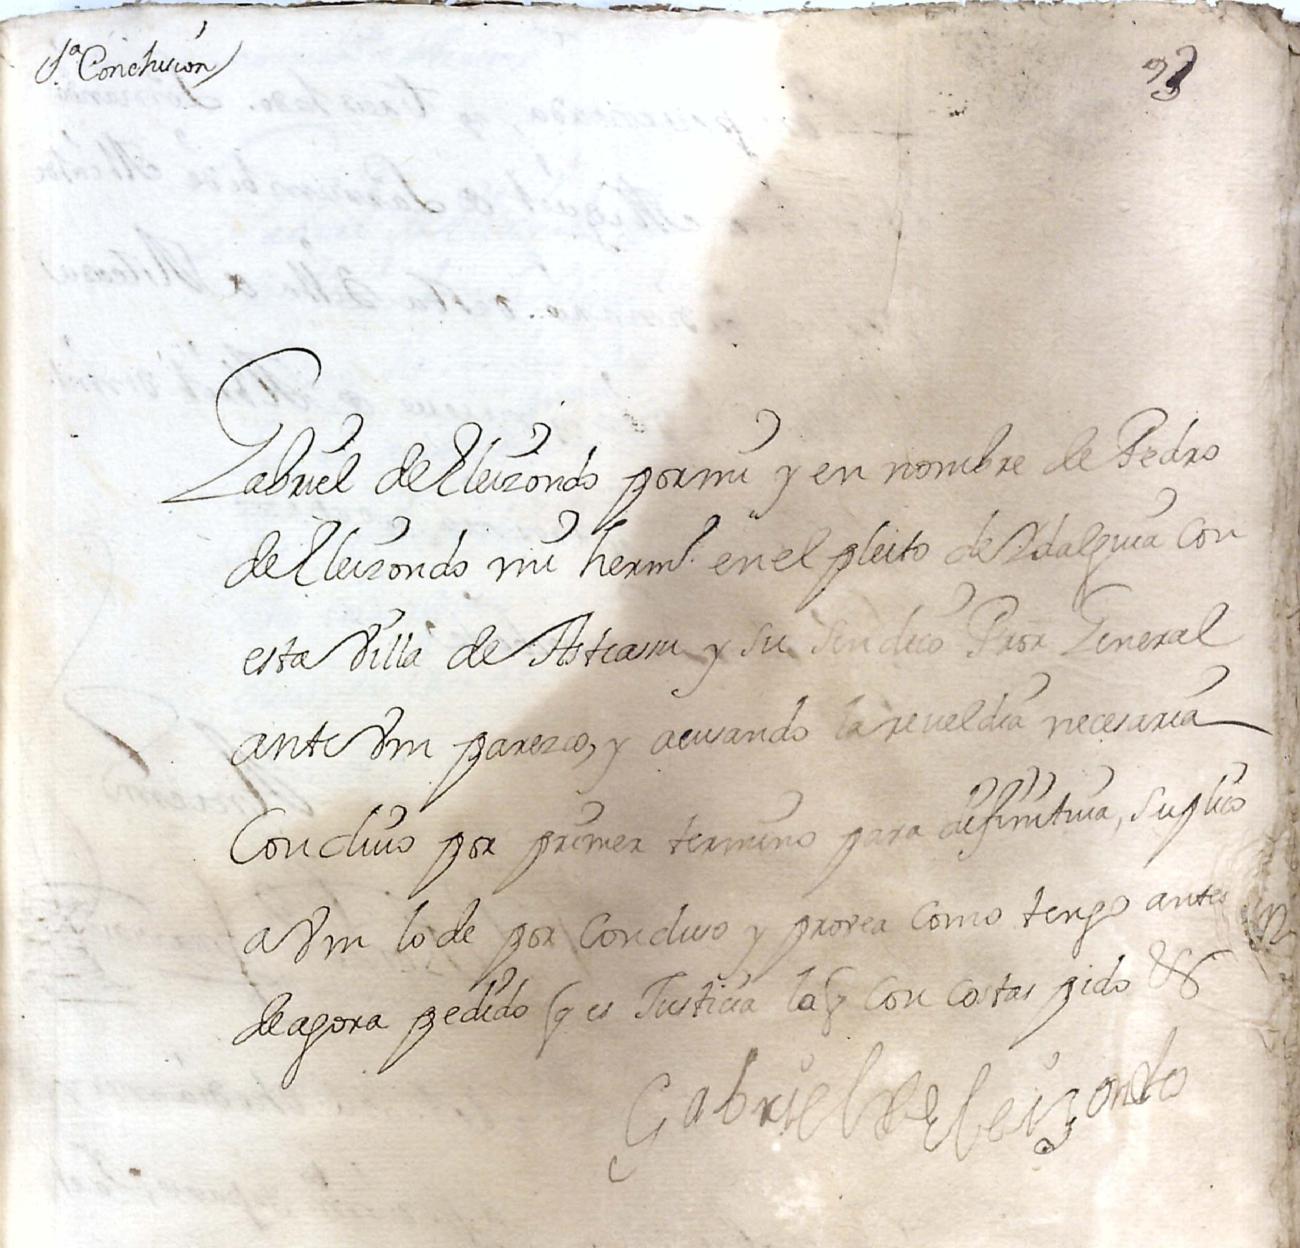 1ª Conclusion
93
Gabriel de Eleizondo por mi y en nombre de Pedro
de Eleizondo mi hermº. en el pleito de Ydalguia con
esta Villa de Asteasu y su sindico Pror General
ante Vm parezco, y acusando la reueldia necesaria
Concluio por primer termino para difinitiua, suplico
a Vm lo de por Concluso y provea como tengo antes
de agora pedido q es Justicia la q con costas pido &
Gabriel de eleizondo